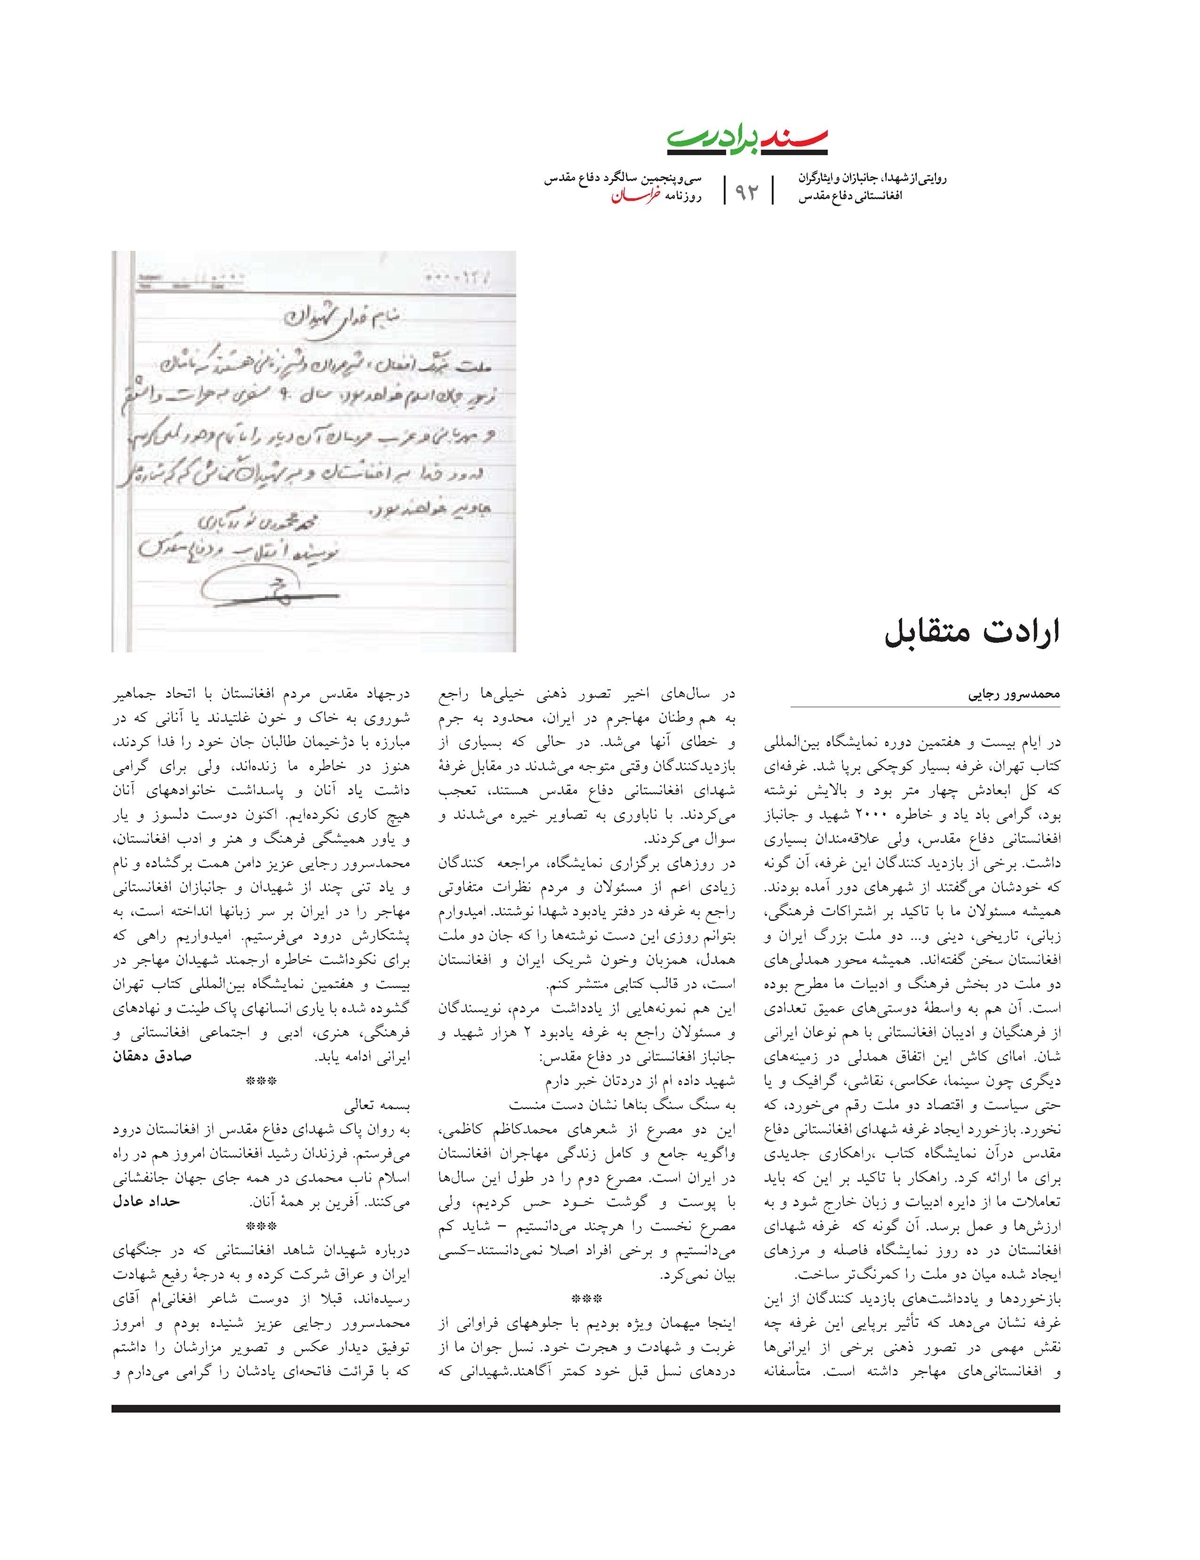 سند برادری
روایتی از شهدا، جانبازان و ایثارگران
افغانستانی دفاع مقدس
۹۲
سی‌و‌پنجمین سالگرد دفاع مقدس
روزنامه خراسان
بنام خدای شهیدان
ملت بزرگ افغان، شیرمردان و شیرزنانی هستند که نامشان
جهان اسلام خواهد بود. سال ۹۰ سفری به هرات داشتم
و مهربانی و مردمان آن دیار را با تمام وجود لمس کردم.
درود خدا بر افغانستان و بر شهیدان که ستاره‌های
جاوید خواهند بود.
محمد محمودی نورآبادی
نویسنده انقلاب و دفاع مقدس
ارادت متقابل
محمدسرور رجایی
در ایام بیست و هفتمین دوره نمایشگاه بین‌المللی
کتاب تهران، غرفه بسیار کوچکی برپا شد. غرفه‌ای
که کل ابعادش چهار متر بود و بالایش نوشته
بود، گرامی باد یاد و خاطره ۲۰۰۰ شهید و جانباز
افغانستانی دفاع مقدس، ولی علاقه‌مندان بسیاری
داشت. برخی از بازدید کنندگان این غرفه، آن گونه
که خودشان می‌گفتند از شهرهای دور آمده بودند.
همیشه مسئولان ما با تاکید بر اشتراکات فرهنگی،
زبانی، تاریخی، دینی و... دو ملت بزرگ ایران و
افغانستان سخن گفته‌اند. همیشه محور همدلی‌های
دو ملت در بخش فرهنگ و ادبیات ما مطرح بوده
است. آن هم به واسطهٔ دوستی‌های عمیق تعدادی
از فرهنگیان و ادیبان افغانستانی با هم نوعان ایرانی
شان. امااى کاش این اتفاق همدلی در زمینه‌های
دیگری چون سینما، عکاسی، نقاشی، گرافیک و یا
حتی سیاست و اقتصاد دو ملت رقم می‌خورد، که
نخورد. بازخورد ایجاد غرفه شهدای افغانستانی دفاع
مقدس درآن نمایشگاه کتاب ،راهکاری جدیدی
برای ما ارائه کرد. راهکار با تاکید بر این که باید
تعاملات ما از دایره ادبیات و زبان خارج شود و به
ارزش‌ها و عمل برسد. آن گونه که غرفه شهدای
افغانستان در ده روز نمایشگاه فاصله و مرزهای
ایجاد شده میان دو ملت را کمرنگ‌تر ساخت.
بازخوردها و یادداشت‌های بازدید کنندگان از این
غرفه نشان می‌دهد که تأثیر برپایی این غرفه چه
نقش مهمی در تصور ذهنی برخی از ایرانی‌ها
و افغانستانی‌های مهاجر داشته است. متأسفانه
در سال‌های اخیر تصور ذهنی خیلی‌ها راجع
به هم وطنان مهاجرم در ایران، محدود به جرم
و خطای آنها می‌شد. در حالی که بسیاری از
بازدیدکنندگان وقتی متوجه می‌شدند در مقابل غرفهٔ
شهدای افغانستانی دفاع مقدس هستند، تعجب
می‌کردند. با ناباوری به تصاویر خیره می‌شدند و
سوال می‌کردند.
در روزهای برگزاری نمایشگاه، مراجعه کنندگان
زیادی اعم از مسئولان و مردم نظرات متفاوتی
راجع به غرفه در دفتر یادبود شهدا نوشتند. امیدوارم
بتوانم روزی این دست نوشته‌ها را که جان دو ملت
همدل، همزبان وخون شریک ایران و افغانستان
است، در قالب کتابی منتشر کنم.
این هم نمونه‌هایی از یادداشت مردم، نویسندگان
و مسئولان راجع به غرفه یادبود ۲ هزار شهید و
جانباز افغانستانی در دفاع مقدس:
شهید داده ام از دردتان خبر دارم
به سنگ سنگ بناها نشان دست منست
این دو مصرع از شعرهای محمدکاظم کاظمی،
واگویه جامع و کامل زندگی مهاجران افغانستان
در ایران است. مصرع دوم را در طول این سال‌ها
با پوست و گوشت خود حس کردیم، ولی
مصرع نخست را هرچند می‌دانستیم – شاید کم
می‌دانستیم و برخی افراد اصلا نمی‌دانستند–کسی
بیان نمی‌کرد.
***
اینجا میهمان ویژه بودیم با جلوههای فراوانی از
غربت و شهادت و هجرت خود. نسل جوان ما از
دردهای نسل قبل خود کمتر آگاهند.شهیدانی که
درجهاد مقدس مردم افغانستان با اتحاد جماهیر
شوروی به خاک و خون غلتیدند یا آنانی که در
مبارزه با دژخیمان طالبان جان خود را فدا کردند،
هنوز در خاطره ما زنده‌اند، ولی برای گرامی
داشت یاد آنان و پاسداشت خانوادههای آنان
هیچ کاری نکرده‌ایم. اکنون دوست دلسوز و یار
و یاور همیشگی فرهنگ و هنر و ادب افغانستان،
محمدسرور رجایی عزیز دامن همت برگشاده و نام
و یاد تنی چند از شهیدان و جانبازان افغانستانی
مهاجر را در ایران بر سر زبانها انداخته است، به
پشتکارش درود می‌فرستیم. امیدواریم راهی که
برای نکوداشت خاطره ارجمند شهیدان مهاجر در
بیست و هفتمین نمایشگاه بین‌المللی کتاب تهران
گشوده شده با یاری انسانهای پاک طینت و نهادهای
فرهنگی، هنری، ادبی و اجتماعی افغانستانی و
ایرانی ادامه یابد. صادق دهقان
***
بسمه تعالی
به روان پاک شهدای دفاع مقدس از افغانستان درود
می‌فرستم. فرزندان رشید افغانستان امروز هم در راه
اسلام ناب محمدی در همه جای جهان جانفشانی
می‌کنند. آفرین بر همهٔ آنان. حداد عادل
***
درباره شهیدان شاهد افغانستانی که در جنگهای
ایران و عراق شرکت کرده و به درجهٔ رفیع شهادت
رسیده‌اند، قبلا از دوست شاعر افغانی‌ام آقای
محمدسرور رجایی عزیز شنیده بودم و امروز
توفیق دیدار عکس و تصویر مزارشان را داشتم
که با قرائت فاتحه‌ای یادشان را گرامی می‌دارم و